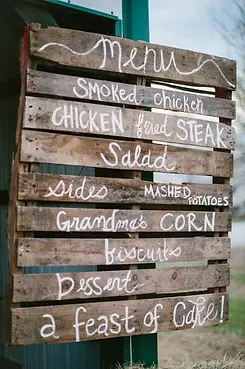 menu
Smoked chicken
CHICKEN fried STEAK
Salad
sides MASHED POTATOES
Grandma's CORN
biscuits
Dessert
a feast of Cake!